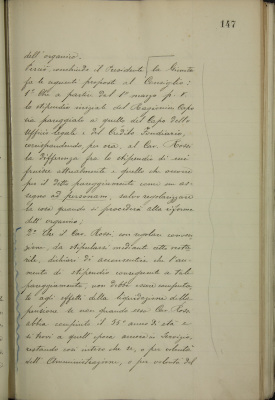 147
dell'organico.
Perciò, conchiude il Presidente la Giunta
fa le seguenti proposte al Consiglio:
1° Che a partire dal 1° marzo p. v.
lo stipendio iniziale del Ragioniere Capo
sia pareggiato a quello del Capo dello
Ufficio legale e del Credito Fondiario,
corrispondendo, per ora, al Cav. Rossi
la differenza fra lo stipendio di cui
fruisce attualmente e quello che
per il detto pareggiamento come un as-
segno ad personam, salvo regolarizzare
la cosa quando si procederà alla riforma
dell'organico;
2° Che il Cav. Rossi, con regolare conven-
zione, da stipularsi mediante atto notar
rile, dichiari di acconsentire che l'au-
mento di stipendio conseguente a tale
pareggiamento, non debba essere computato,
agli effetti della liquidazione della
pensione se non quando esso Cav. Rossi
abbia compiuto il 35° anno di età e
si trovi a quell'epoca ancora in servizio,
restando così inteso che se, o per volontà
dell'Amministrazione, o per volontà del